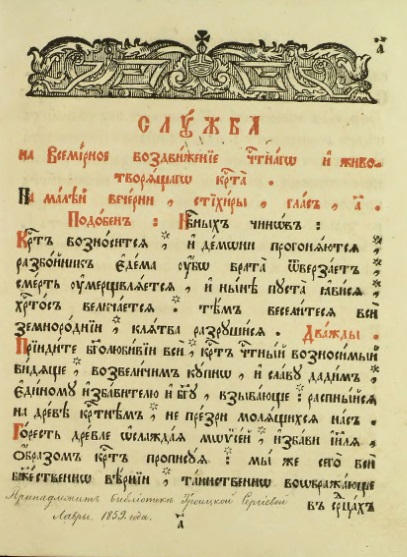 СЛꙊ́ЖБА
на Всемі́рное воздви́женїе чⷭ҇тна́гѡ и҆ живо-
творѧ́щагѡ крⷭ҇та̀.
На ма́лѣй вече́рни, стїхи̑ры, гла́съ, а҃.
Подо́бенъ: Нбⷭ҇ныхъ чинѡ́въ:
Крⷭ҇тъ возно́ситсѧ, и҆ де́мѡни прогонѧ́ютсѧ,
разбо́йникъ є҆де́ма
сме́рть ᲂу҆мерщвлѧ́етсѧ, и҆ ны́нѣ пꙋста̀ ꙗ҆ви́сѧ,
хрⷭ҇то́съ велича́етсѧ. тѣ́мъ весели́тесѧ всѝ
земноро́днїи, клѧ́тва разрꙋши́сѧ. Два́жды.
Прїиди́те бг҃олюби́вїи всѝ, крⷭ҇тъ чⷭ҇тны́й возноси́мый
ви́дѧще, возвели́чимъ кꙋ́пнѡ, и҆ сла́вꙋ дади́мъ,
є҆ди́номꙋ и҆зба́вителю и҆ бг҃ꙋ, взыва́юще: распны́йсѧ
на дре́вѣ крⷭ҇тнѣмъ, не пре́зри молѧ́щихсѧ на́съ.
Го́ресть дре́вле ѡ҆слажда́ѧ мѡѷсе́й, и҆зба́ви і҆и҃лѧ,
ѡ҆́бразомъ крⷭ҇тъ пропи́сꙋѧ: мы́ же сегѡ̀ всѝ
бж҃е́ственнѡ вѣ́рнїи, та́инственнѡ воѡбража́юще
въ срⷣца́хъ
Принадлежитъ библіотекѣ Троицкой Сергіевой
Лавры. 1859. года.
а҃